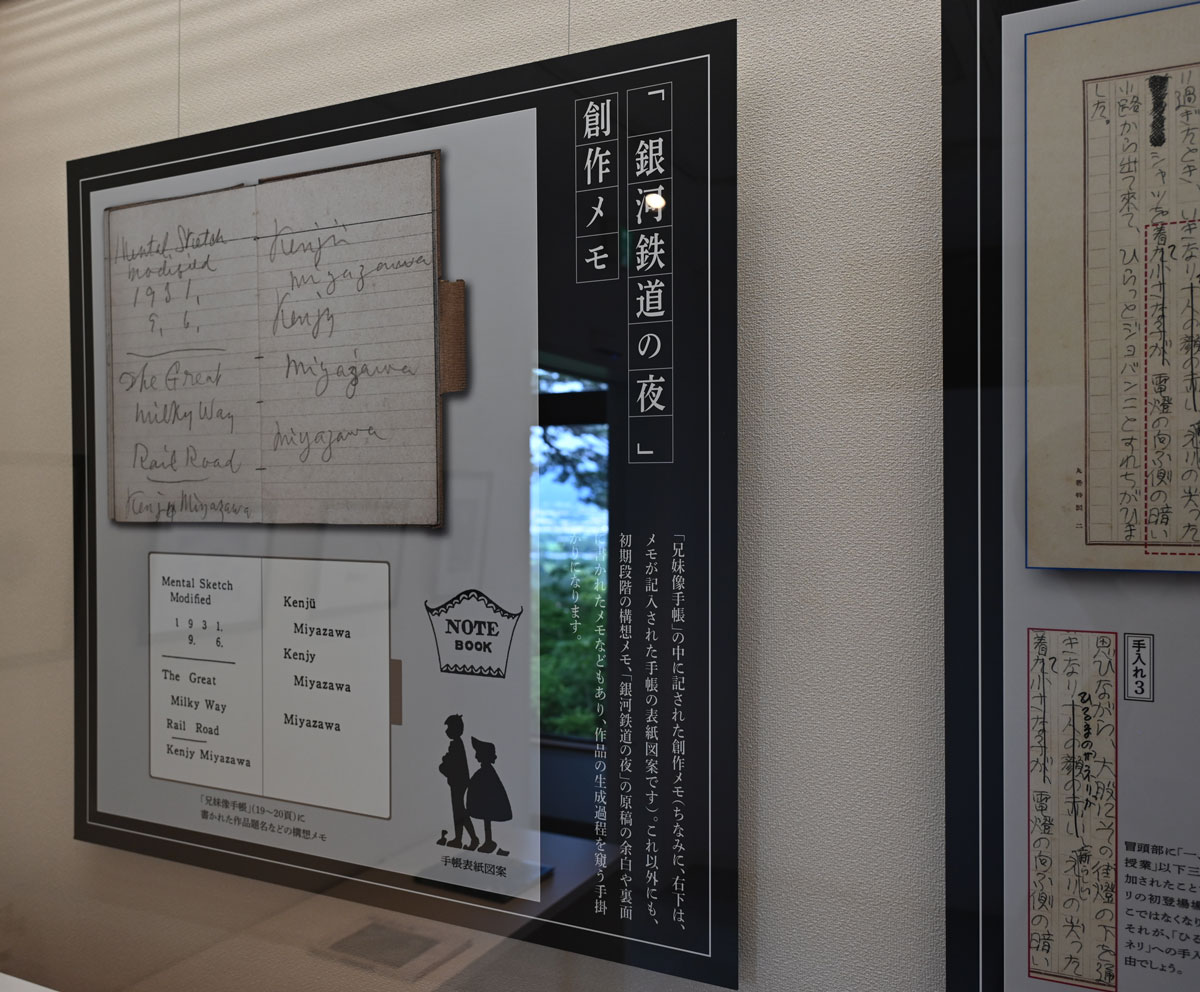 「銀河鉄道の夜」
創作メモ
Mental Sketch
modified
1931,
9, 6,
The Great
milky Way
Rail Road
Kenjy Miyazawa
Kenjü
miyazawa
Kenjy
miyazawa
miyazawa
Mental Sketch
Modified
1931.
9. 6.
The Great
Milky Way
Rail Road
Kenjy Miyazawa
Kenjü
Miyazawa
Kenjy
Miyazawa
Miyazawa
「兄妹像手帳」(19〜20頁)に
書かれた作品題名などの構想メモ
NOTE
BOOK
手帳表紙図案
「兄妹像手帳」の中に記された創作メモ(ちなみに、右下は、
メモが記入された手帳の表紙図案です)。これ以外にも、
初期段階の構想メモ、「銀河鉄道の夜」の原稿の余白や裏面
に書かれたメモなどもあり、作品の生成過程を窺う手掛
かりになります。
過ぎたとき、いきなり一人の顔の
シャツを着た小さな子が、電燈の向ふ側の暗い
小路から出て来て、ひらっとジョバンニとすれちがひま
した。
手入れ3
思ひながら、大股にその街燈の下を通
ひるまのザネリが
きなり一人の顔の赤い、新らしい
着た小さな子が、電燈の向ふ側の暗い
冒頭部に「一、
授業」以下三
加されたこと
リの初登場場
こではなくなり
それが、「ひる
ネリ」への手入
由でしょう。